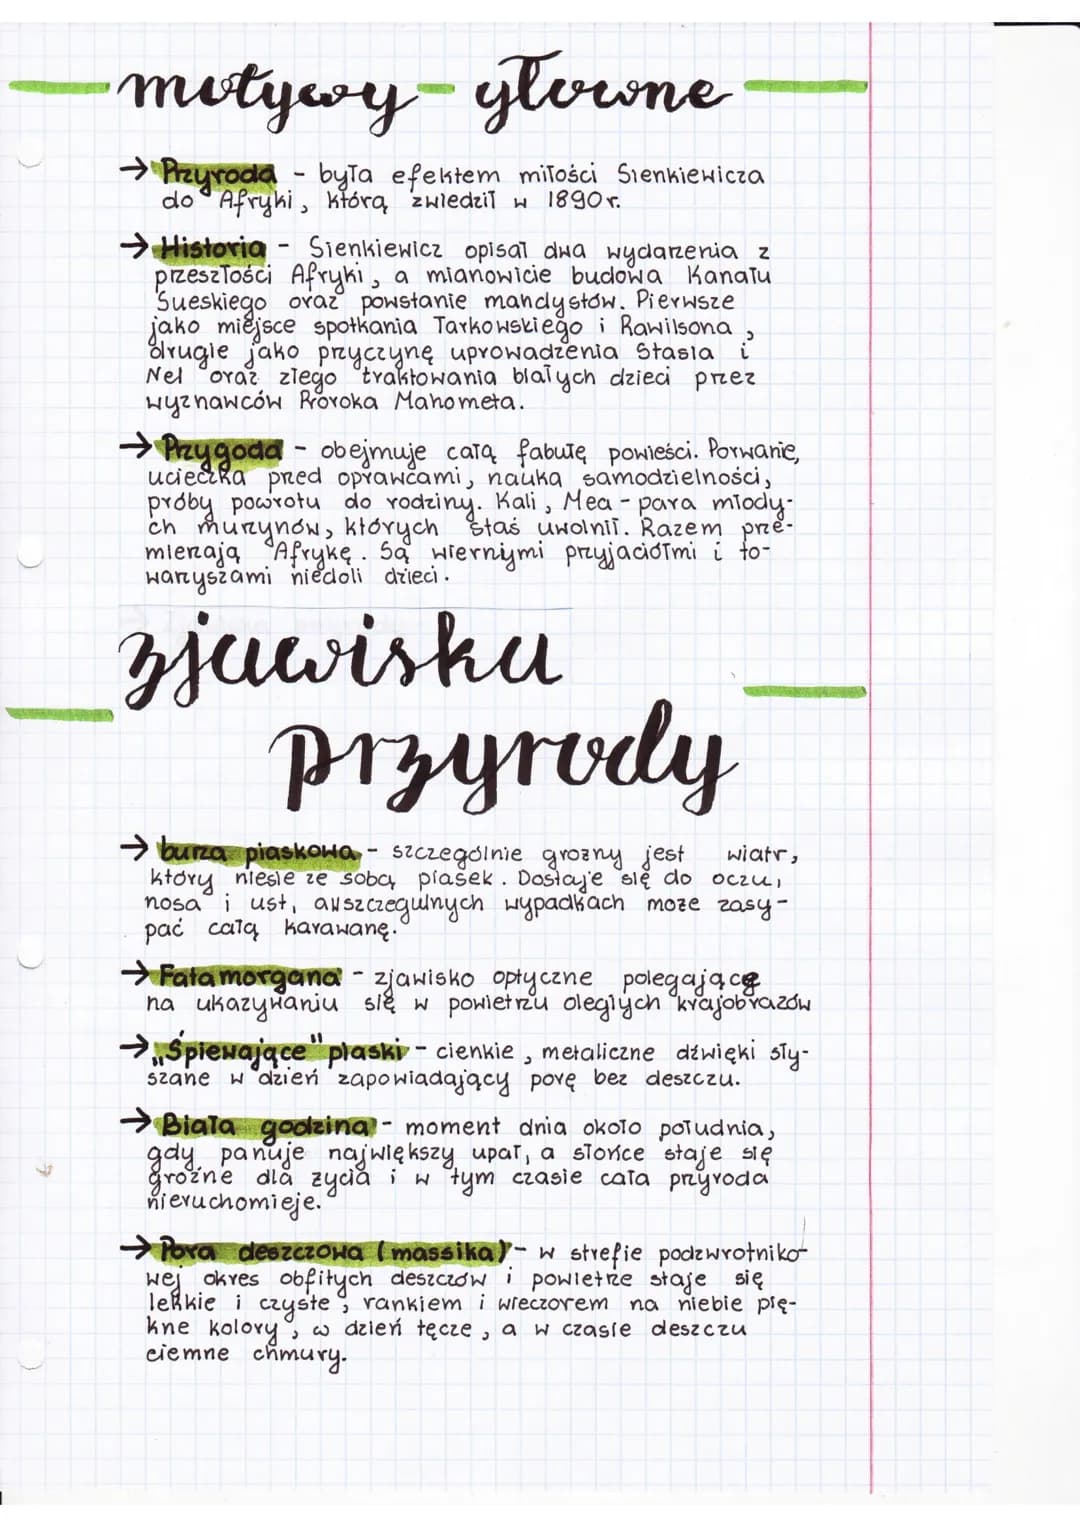 motywy - głowne
→ Przyroda - była efektem miłości Sienkiewicza
do Afryki, którą zwiedził w 1890r.
→ Historia - Sienkiewicz opisał dwa wydarzenia z
przeszłości Afryki, a mianowicie budowa Kanału
Sueskiego oraz powstanie mandystów. Pierwsze
jako miejsce spotkania Tarkowskiego i Rawilsona,
drugie jako przyczynę uprowadzenia Stasia i
Nel oraz złego traktowania białych dzieci przez
wyznawców Proroka Mahometa.
→ Przygoda - obejmuje całą fabułę powieści. Porwanie,
ucieczka przed oprawcami, nauka samodzielności,
próby powrotu do rodziny. Kali, Mea - para młody-
ch murzynów, których Staś uwolnił. Razem prze-
mierzają Afrykę. Są wiernymi przyjaciółmi i to-
warzyszami niedoli dzieci.
zjawiska
przyrody
→ burza piaskowa - szczególnie groźny jest wiatr,
który niesie ze sobą piasek. Dostaje się do oczu,
nosa i ust, awszczegulnych wypadkach może zasy-
pać całą karawanę.
→ Fatamorgana - zjawisko optyczne polegające
na ukazywaniu się w powietrzu oległych krajobrazów
→ „Śpiewające" piaski - cienkie, metaliczne dźwięki sły-
szane w dzień zapowiadający porę bez deszczu.
→ Biała godzina - moment dnia około południa,
gdy panuje największy upał, a słońce staje się
groźne dla życia i w tym czasie cała przyroda
nieruchomieje.
→ Pora deszczowa (massika) - w strefie podzwrotniko-
wej okres obfitych deszczów i powietrze staje się
lekkie i czyste, rankiem i wieczorem na niebie pię-
kne kolory, w dzień tęcze, a w czasie deszczu
ciemne chmury.